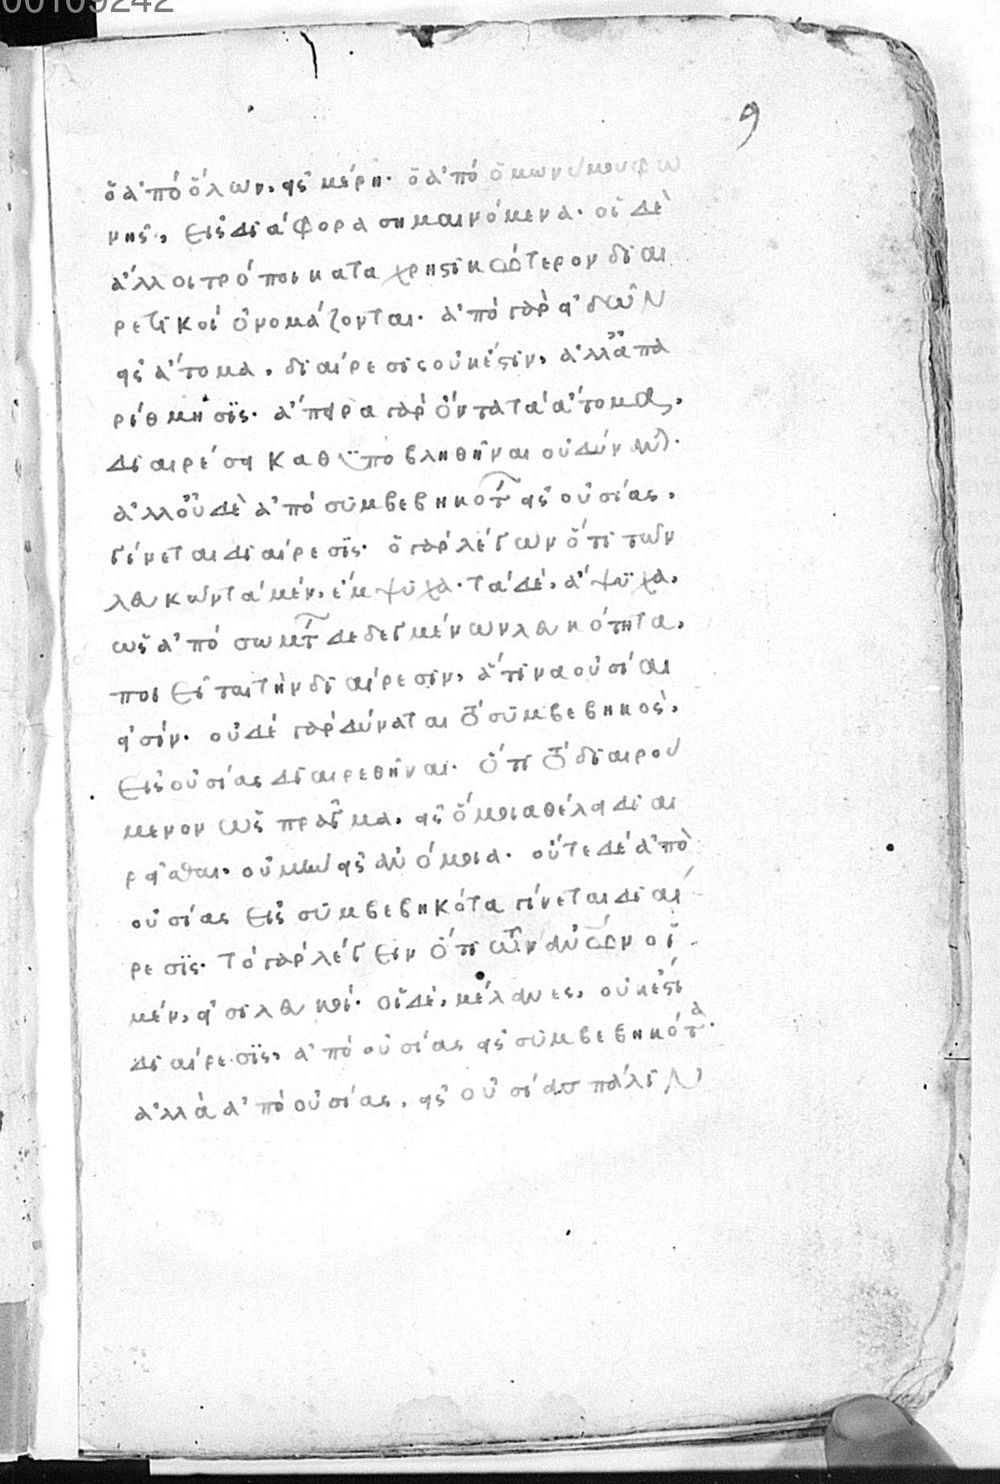 00109242
9
ὁ ἀπὸ ὅλων, εἰς μέρη· ὁ ἀπὸ ὁμωνύμου φω
νῆς, εἰς διάφορα σημαινόμενα· οἱ δὲ
ἄλλοι τρόποι καταχρηστικώτερον διαι
ρετικοί ὀνομάζονται· ἀπὸ γὰρ εἰδῶν
εἰς ἄτομα, διαίρεσις οὐκ ἔστιν, ἀλλ' ἀπα
ρίθμησις· ἄπειρα γὰρ ὄντα τὰ ἄτομα,
διαιρέσει καθυποβληθῆναι οὐ δύναται·
ἀλλ' οὐδὲ ἀπὸ συμβεβηκότων εἰς οὐσίας,
γίνεται διαίρεσις· ὁ γὰρ λέγων ὅτι τῶν
λευκῶν τὰ μέν, ἔμψυχα· τὰ δέ, ἄψυχα,
ὡς ἀπὸ σωμάτων δεδεγμένων λευκότητα,
ποιεῖται τὴν διαίρεσιν, ἅτινα οὐσίαι
εἰσίν· οὐδὲ γὰρ δύναται τὸ συμβεβηκὸς,
εἰς οὐσίας διαιρεθῆναι· ὅτι τὸ διαιρού
μενον ὡς πρᾶγμα, εἰς ὅμοια θέλει διαι
ρεῖσθαι, οὐ μὴν εἰς ἀνόμοια· οὔτε δὲ ἀπὸ
οὐσίας εἰς συμβεβηκότα γίνεται διαί
ρεσις· τὸ γὰρ λέγειν ὅτι τῶν ἀνων οἱ
μέν, εἰσι λευκοί· οἱ δὲ, μέλανες, οὐκ ἔστι
διαίρεσις, ἀπὸ οὐσίας εἰς συμβεβηκότα·
ἀλλὰ ἀπὸ οὐσίας, εἰς οὐσίαν πάλιν